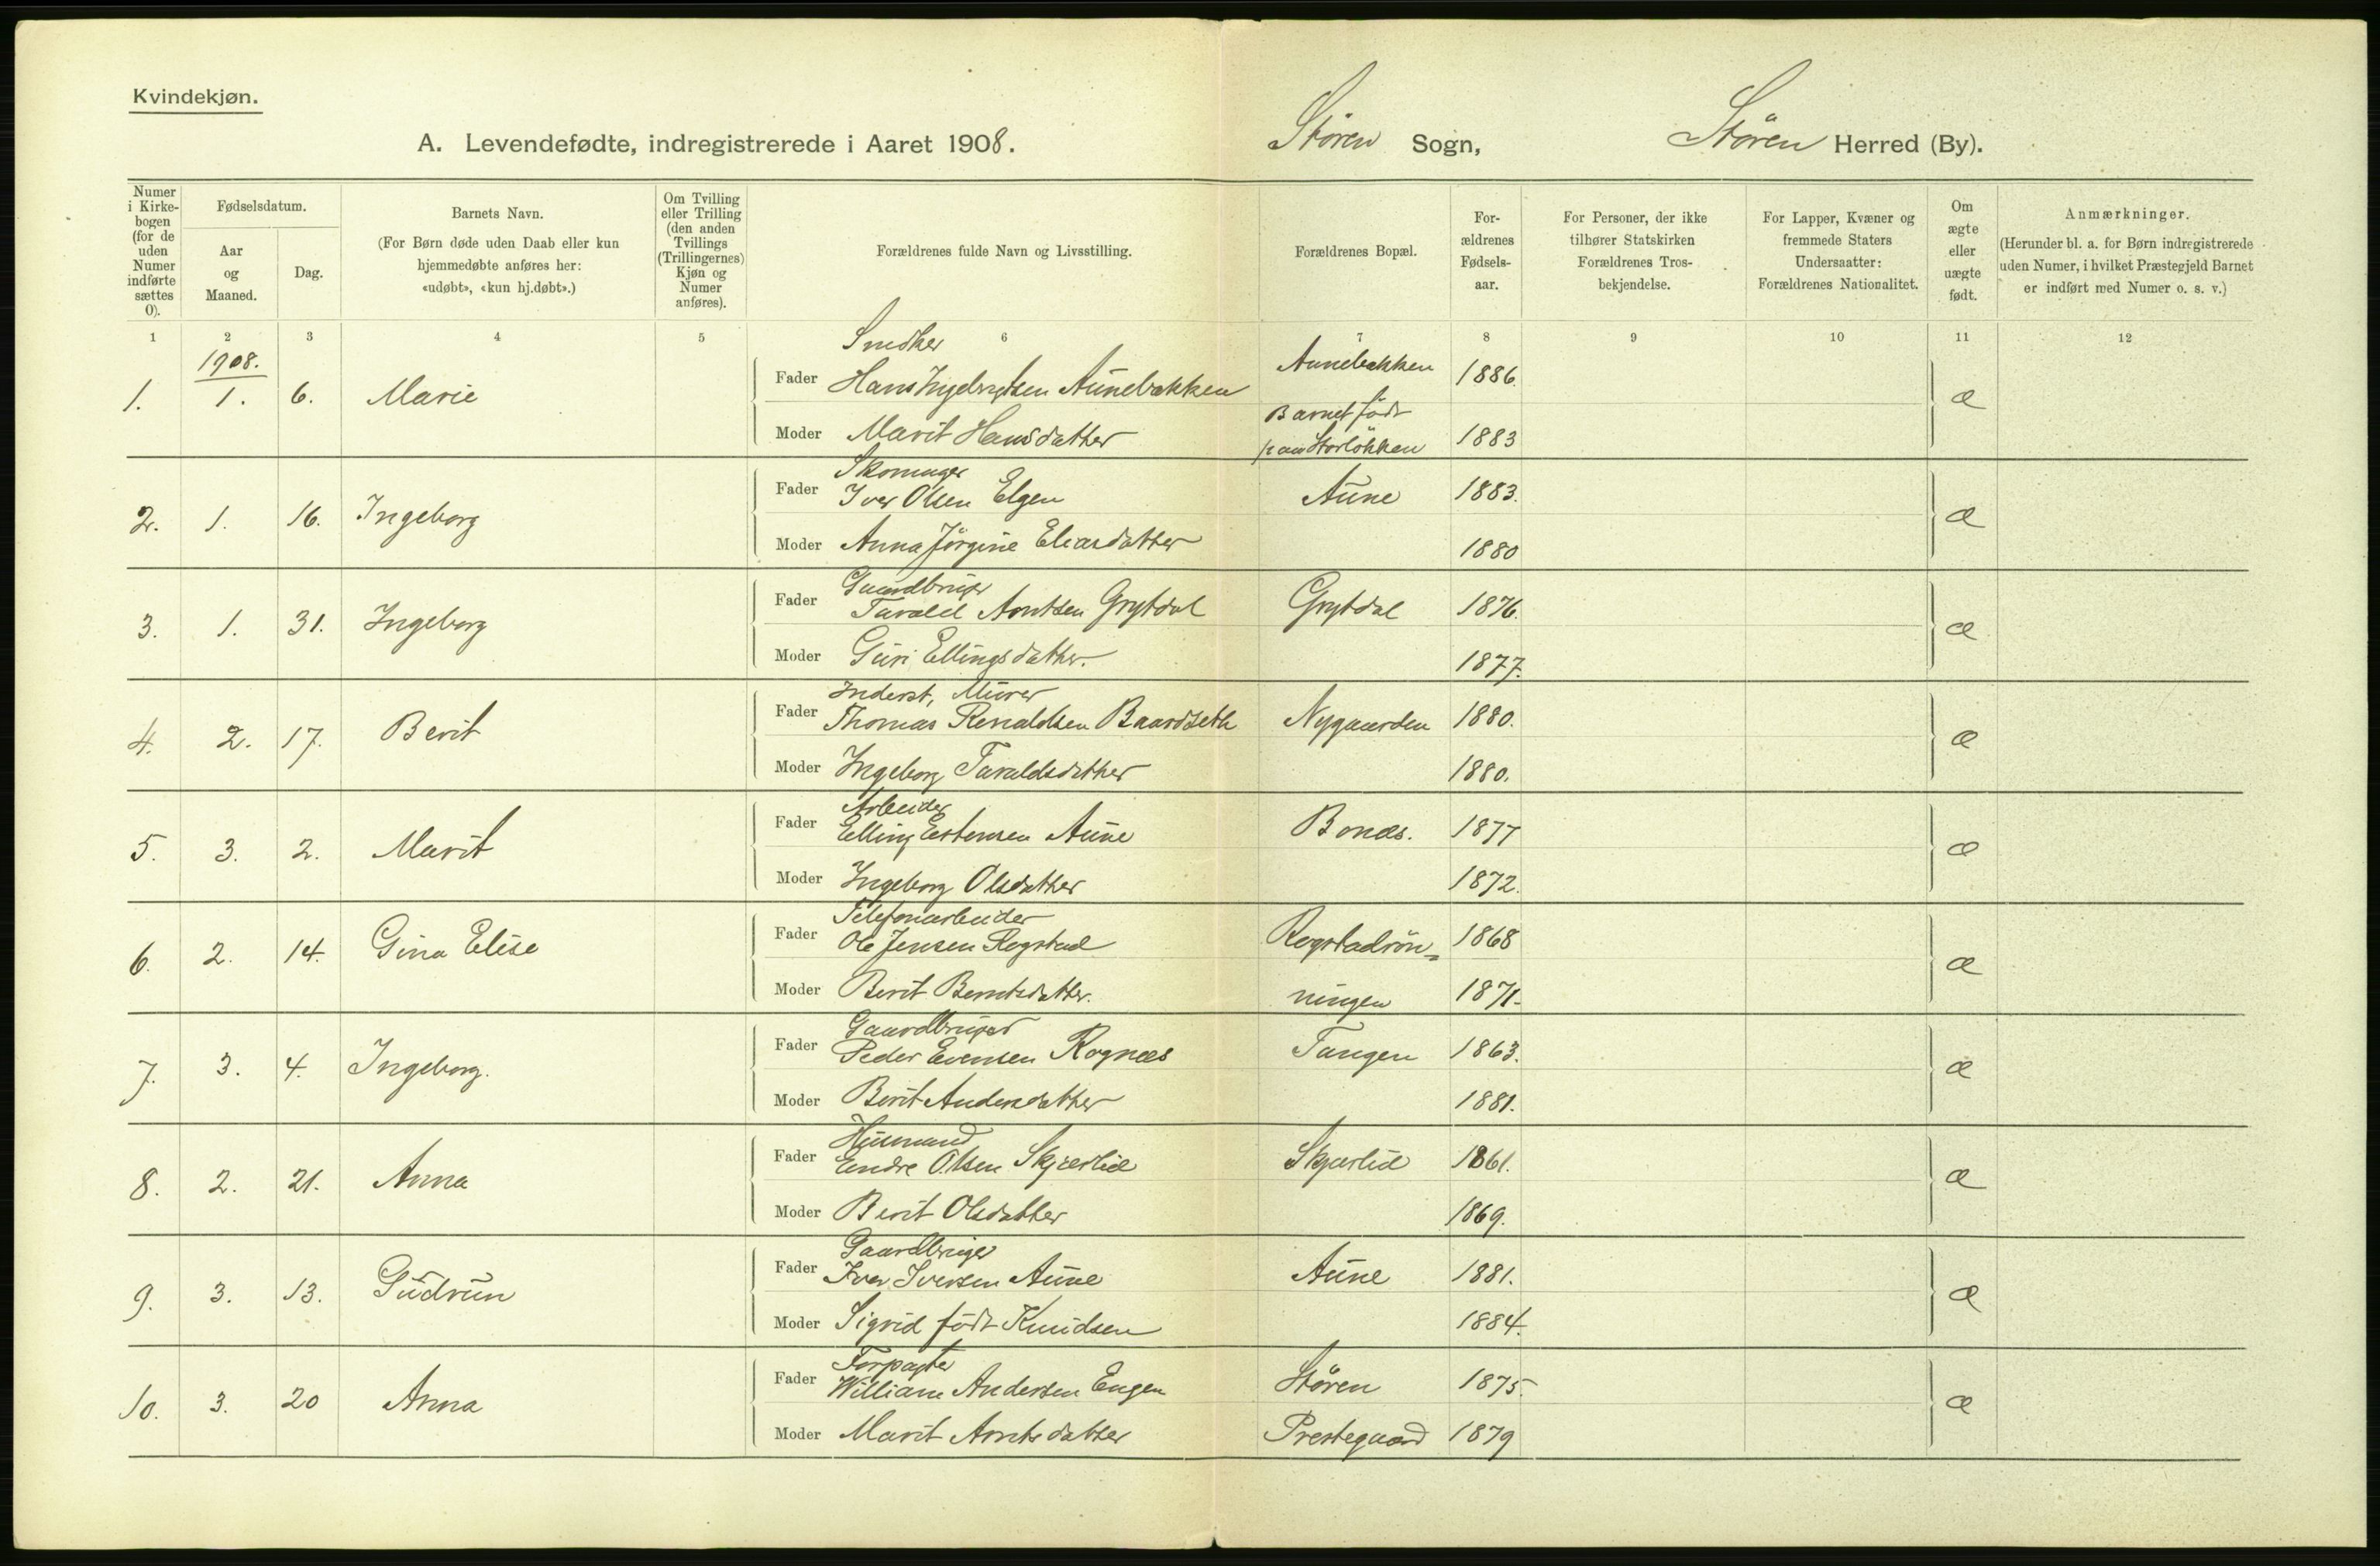 Kvindekjøn.
A. Levendefødte, indregistrerede i Aaret 1908.
Støren Sogn,
Støren Herred (By).
Numer i Kirke-bogen (for de uden Numer indførte sættes 0).
Fødselsdatum.
Aar og Maaned.
Dag.
Barnets Navn.
(For Børn døde uden Daab eller kun hjemmedøbte anføres her: «udøbt», «kun hj.døbt».)
Om Tvilling eller Trilling (den anden Tvillings (Trillingernes) Kjøn og Numer anføres).
Forældrenes fulde Navn og Livsstilling.
Forældrenes Bopæl.
For-ældrenes Fødsels-aar.
For Personer, der ikke tilhører Statskirken Forældrenes Tros-bekjendelse.
For Lapper, Kvæner og fremmede Staters Undersaatter: Forældrenes Nationalitet.
Om ægte eller uægte født.
Anmærkninger.
(Herunder bl. a. for Børn indregistrerede uden Numer, i hvilket Præstegjeld Barnet er indført med Numer o. s. v.)
1 2 3 4 5 6 7 8 9 10 11 12
1908.
Snedker
1. 1. 6. Marie Fader Hans Ingebrigtsen Aunebakken Aunebakken 1886. æ
Barnet født
Moder Marit Hansdatter paa Storløkken 1883
Skomager
2. 1. 16. Ingeborg Fader Iver Olsen Elgen Aune 1883. æ
Moder Anna Jørgine Eliasdatter 1880
Gaardbruger
3. 1. 31. Ingeborg Fader Tarald Arntsen Grytdal Grytdal 1876. æ
Moder Guri Ellingsdatter. 1877.
Inderst, Murer
4. 2. 17. Berit Fader Thomas Renaldsen Baardseth Nygaarden 1880. æ
Moder Ingeborg Taraldsdatter 1880.
Arbeider
5. 3. 2. Marit Fader Elling Estensen Aune Bones. 1877 æ
Moder Ingeborg Olsdatter 1872.
Telefonarbeider
6. 2. 14. Gina Elise Fader Ole Jensen Rogstad Rogstadrøn= 1868 æ
Moder Berit Berntsdatter. ningen 1871.
Gaardbruger
7. 3. 4. Ingeborg. Fader Peder Evensen Rognes Tangen 1863. æ
Moder Berit Andersdatter 1881.
Husmand
8. 2. 21. Anna Fader Endre Olsen Skjærlid Skjærlid 1861. æ
Moder Berit Olsdatter 1869.
Gaardbruger
9. 3. 13. Gudrun Fader Iver Iversen Aune Aune 1881. æ
Moder Sigrid født Knudsen 1884.
Forpagter
10. 3. 20 Anna Fader William Andersen Engen Støren 1875. æ
Moder Marit Arntsdatter Prestegaard 1879